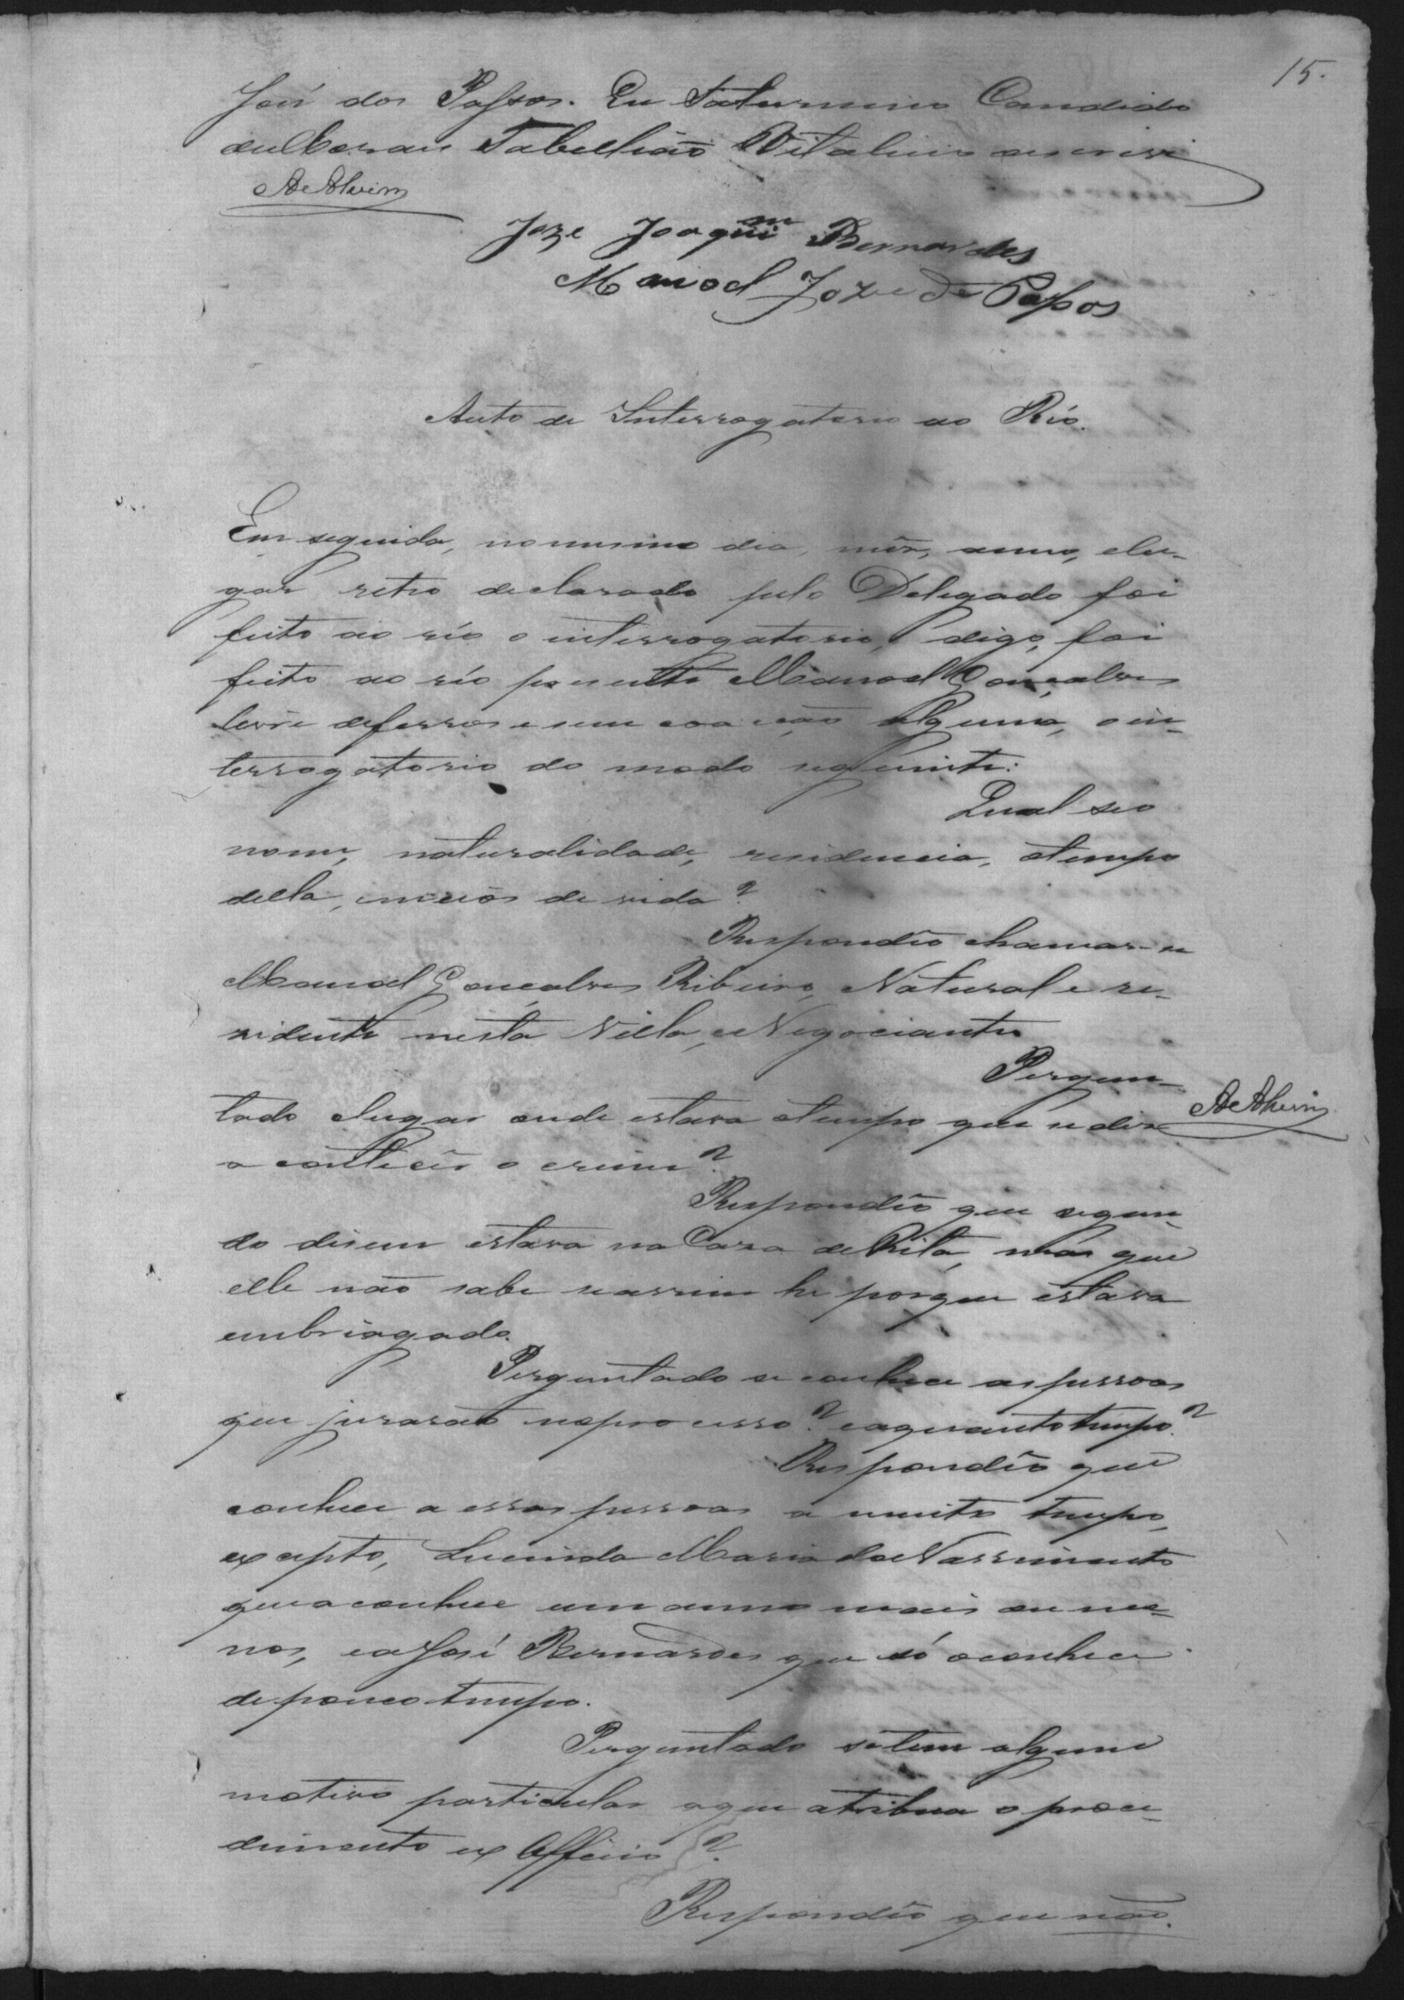 15.
José dos Passos. Eu Saturnino Candido
de Moraes Tabellião Vitalicio escrevi
A e Alvim
Joze Joaquim Bernardes
Manoel Joze de Passos
Auto de Interrogatorio ao Réo.
Em seguida, no mesmo dia, mêz, anno, e lu-
gar retro declarado pelo Delegado foi
feito ao réo o interrogatorio, digo, foi
feito ao réo presente Manoel Gonçalves
livre de ferros e sem coacção alguma, o in-
terrogatorio do modo seguinte:
Qual seo
nome, naturalidade, residencia, e tempo
della, e meios de vida?
Respondêo chamar-se
Manoel Gonçalves Ribeiro, Natural e re-
zidente nesta Villa, e Negociante
Pergun-
tado o lugar onde estava o tempo que se diz
A e Alvim
aconteceo o crime?
Respondêo que segun-
do disem estava na Caza de Rita, mas que
elle não sabe se assim he porque estava
embriagado.
Perguntado se conhece as pessoas
que jurarão no processo? e a quanto tempo?
Respondêo que
conhece a essas pessoas a muito tempo,
excepto, Lucinda Maria do Nassimento
que a conhece um anno mais ou me-
nos, e a José Bernardes que só o conhece
de pouco tempo.
Perguntado se tem algum
motivo particular a que atribua o proce-
dimento ex Officio?
Respondêo que não.